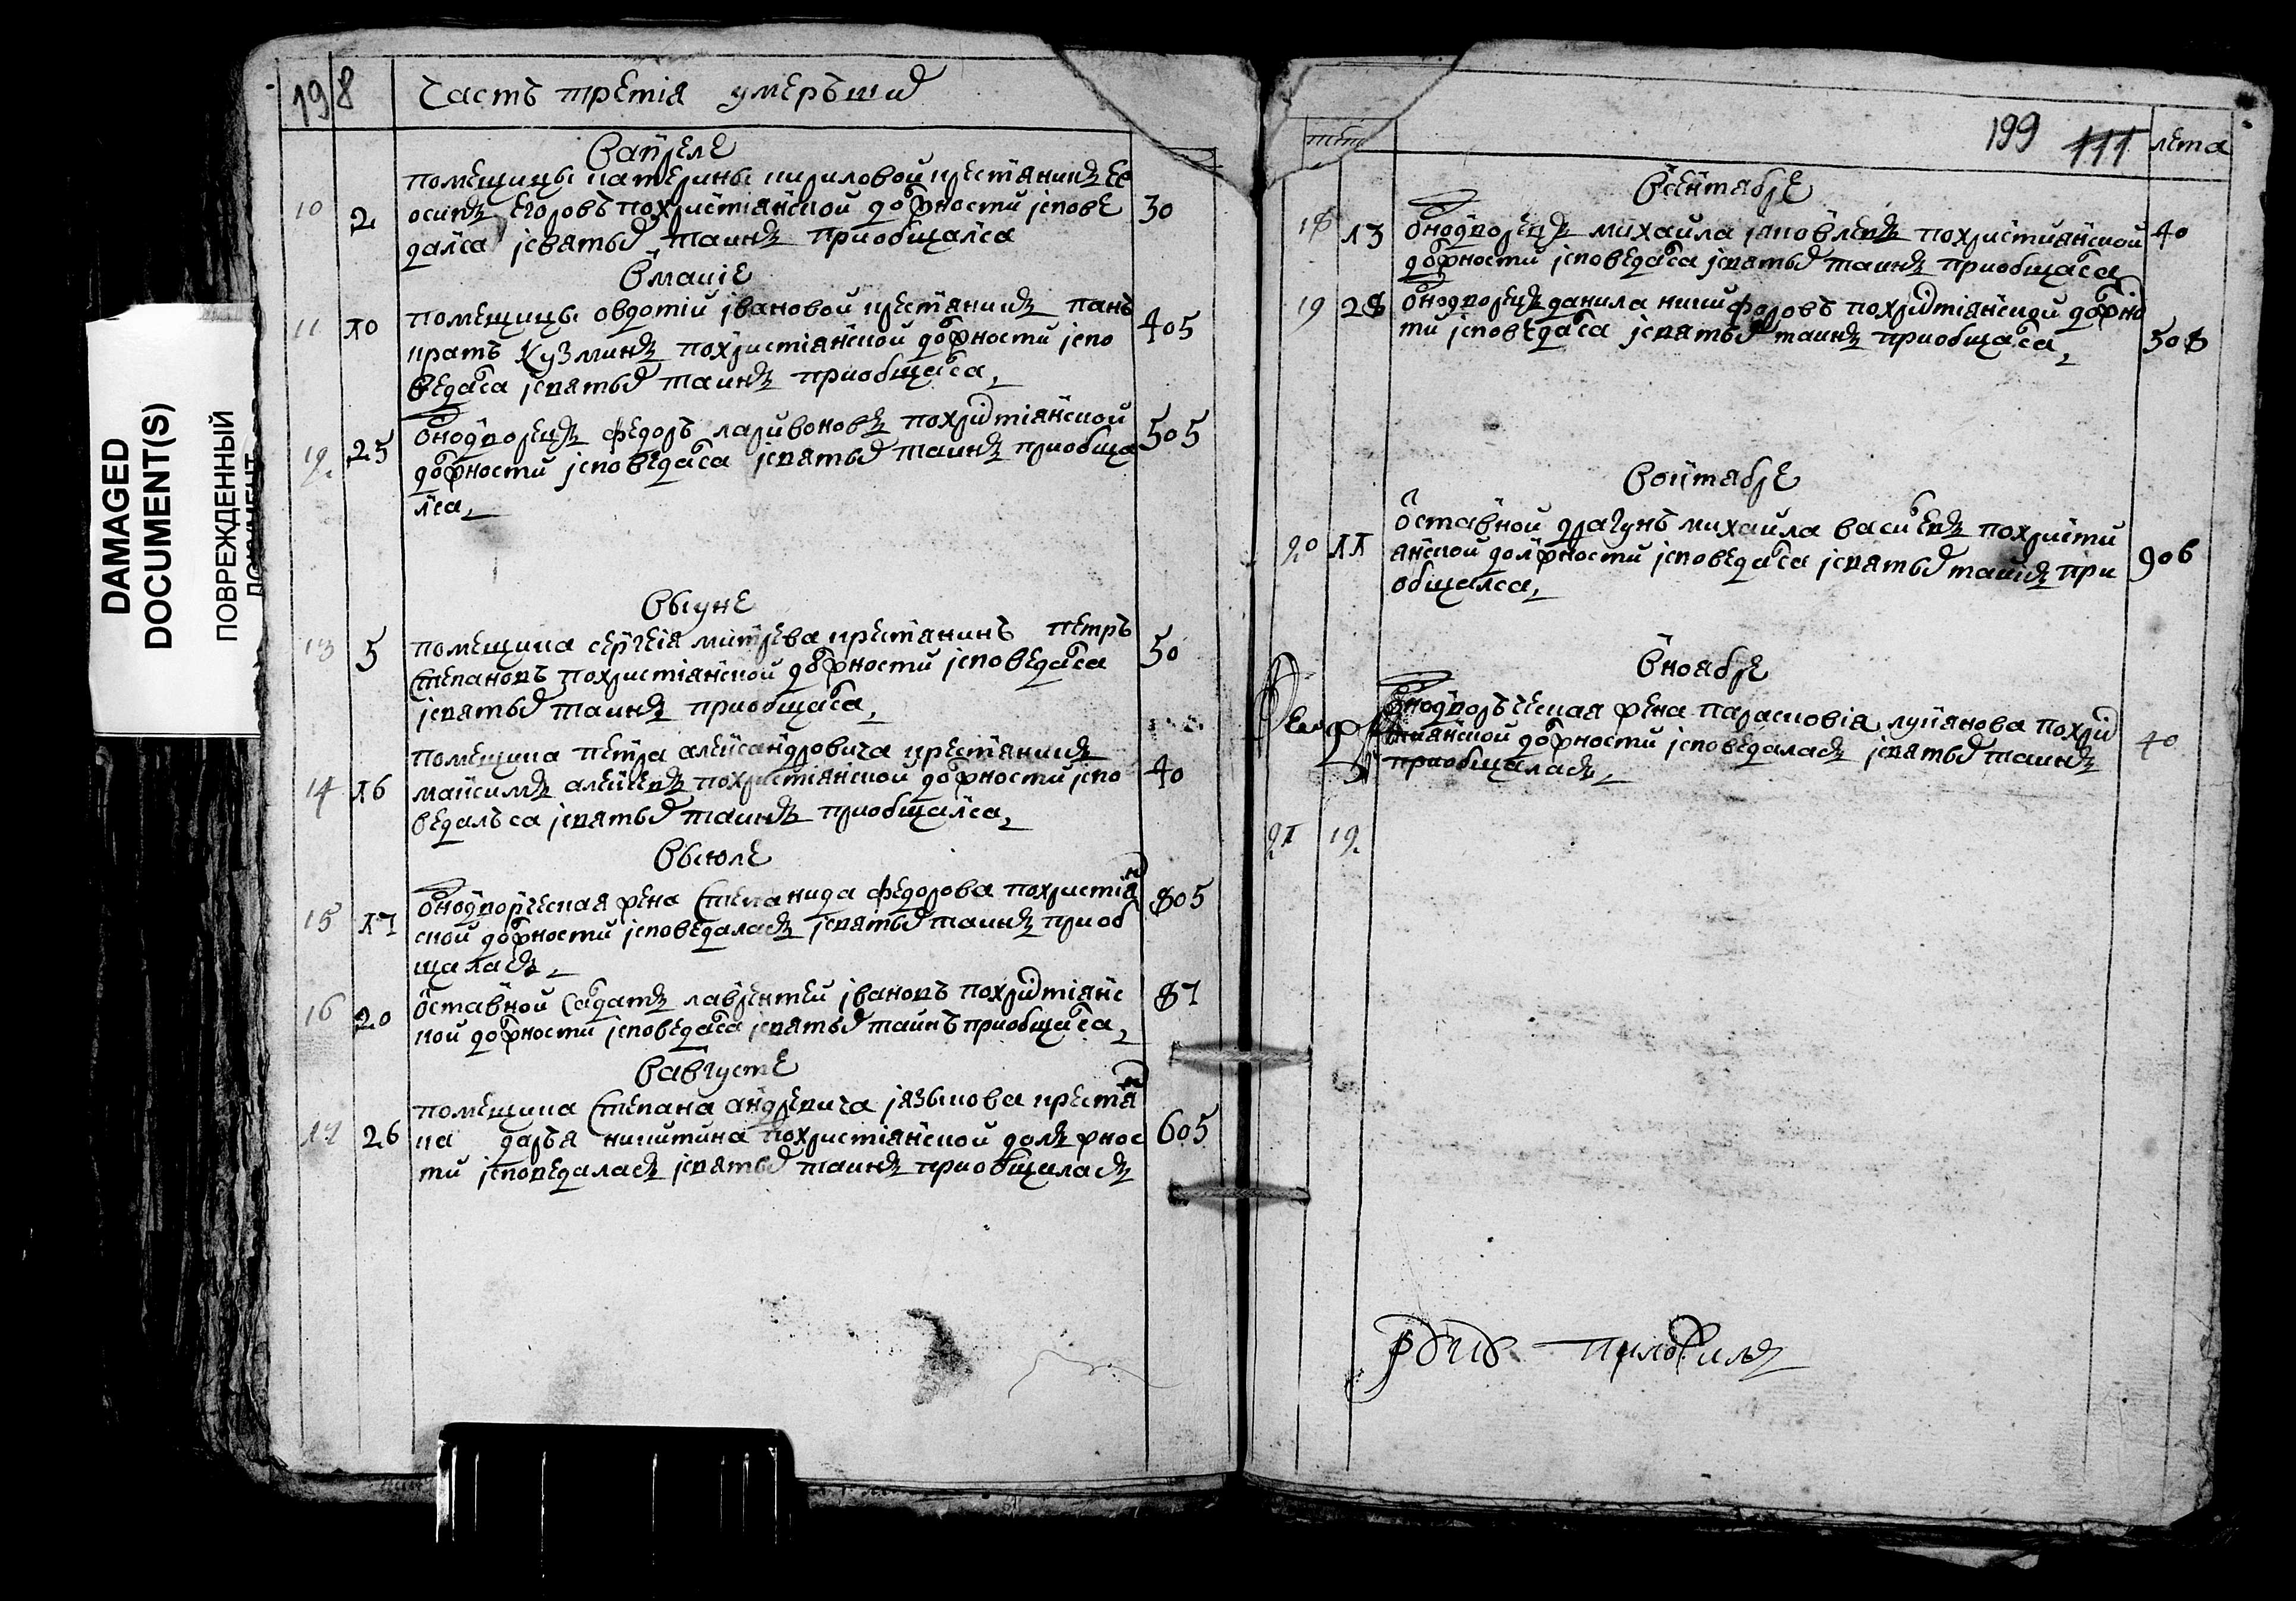 DAMAGED
DOCUMENT(S)
ПОВРЕЖДЕННЫЙ
198 Часть третия умеръших
Вапреле
помещицы катерины кириловой крестянинъ ев
10 2 осипъ егоровъ похристіянской должности iспове 30
дался iсвятых таинъ приобщался
Вмаиiе
помещицы овдотiи iвановой крестянинъ панъ
11 10 кратъ Кузминъ похристiянской должности iспо 405
ведался iсвятых таинъ приобщался
12 25 однодворецъ федоръ ларивоновъ похристiянской 505
должности iсповедался iсвятых таинъ приобща
лся
Выуне
13 5 помещика сергеiя митрева крестянинъ петръ 50
Степановъ похристiянской должности iсповедался
iсвятых таинъ приобщался
помещика петра александровича крестянинъ
14 16 максимъ алексевъ похристiянской должности iспо 40
ведалъса iсвятых таинъ приобщался
Выюле
15 17 однодворческая жена Степанида федорова похристiян 805
ской должности iсповедалась iсвятых таинъ приоб
щалась
16 20 отставной Салдатъ лаврентей iвановъ похристiянс 87
кой должности iсповедался iсвятых таинъ приобщался
Вавгусте
помещика Степана андревича iазыкова крестян
17 26 ка даръя никитина похристiянской должнос 605
ти iсповедалась iсвятых таинъ приобщилась
199 111 лета
Всентябре
18 13 однодворецъ михаила iаковлевъ похристиянской 40
должности iсповедался iсвятых таинъ приобщался
19 28 однодворецъ данила никифоровъ похристiянской должно
сти iсповедался iсвятых таинъ приобщался 508
Воктябре
отставной драгунъ михаила василевъ похристи
20 11 янской должности iсповедался iсвятых таинъ при 906
общался
Вноябре
однодворъческая жена парасковiя лукянова похрис
тиянской должности iсповедалась iсвятых таинъ 40
приобщалась
21 12